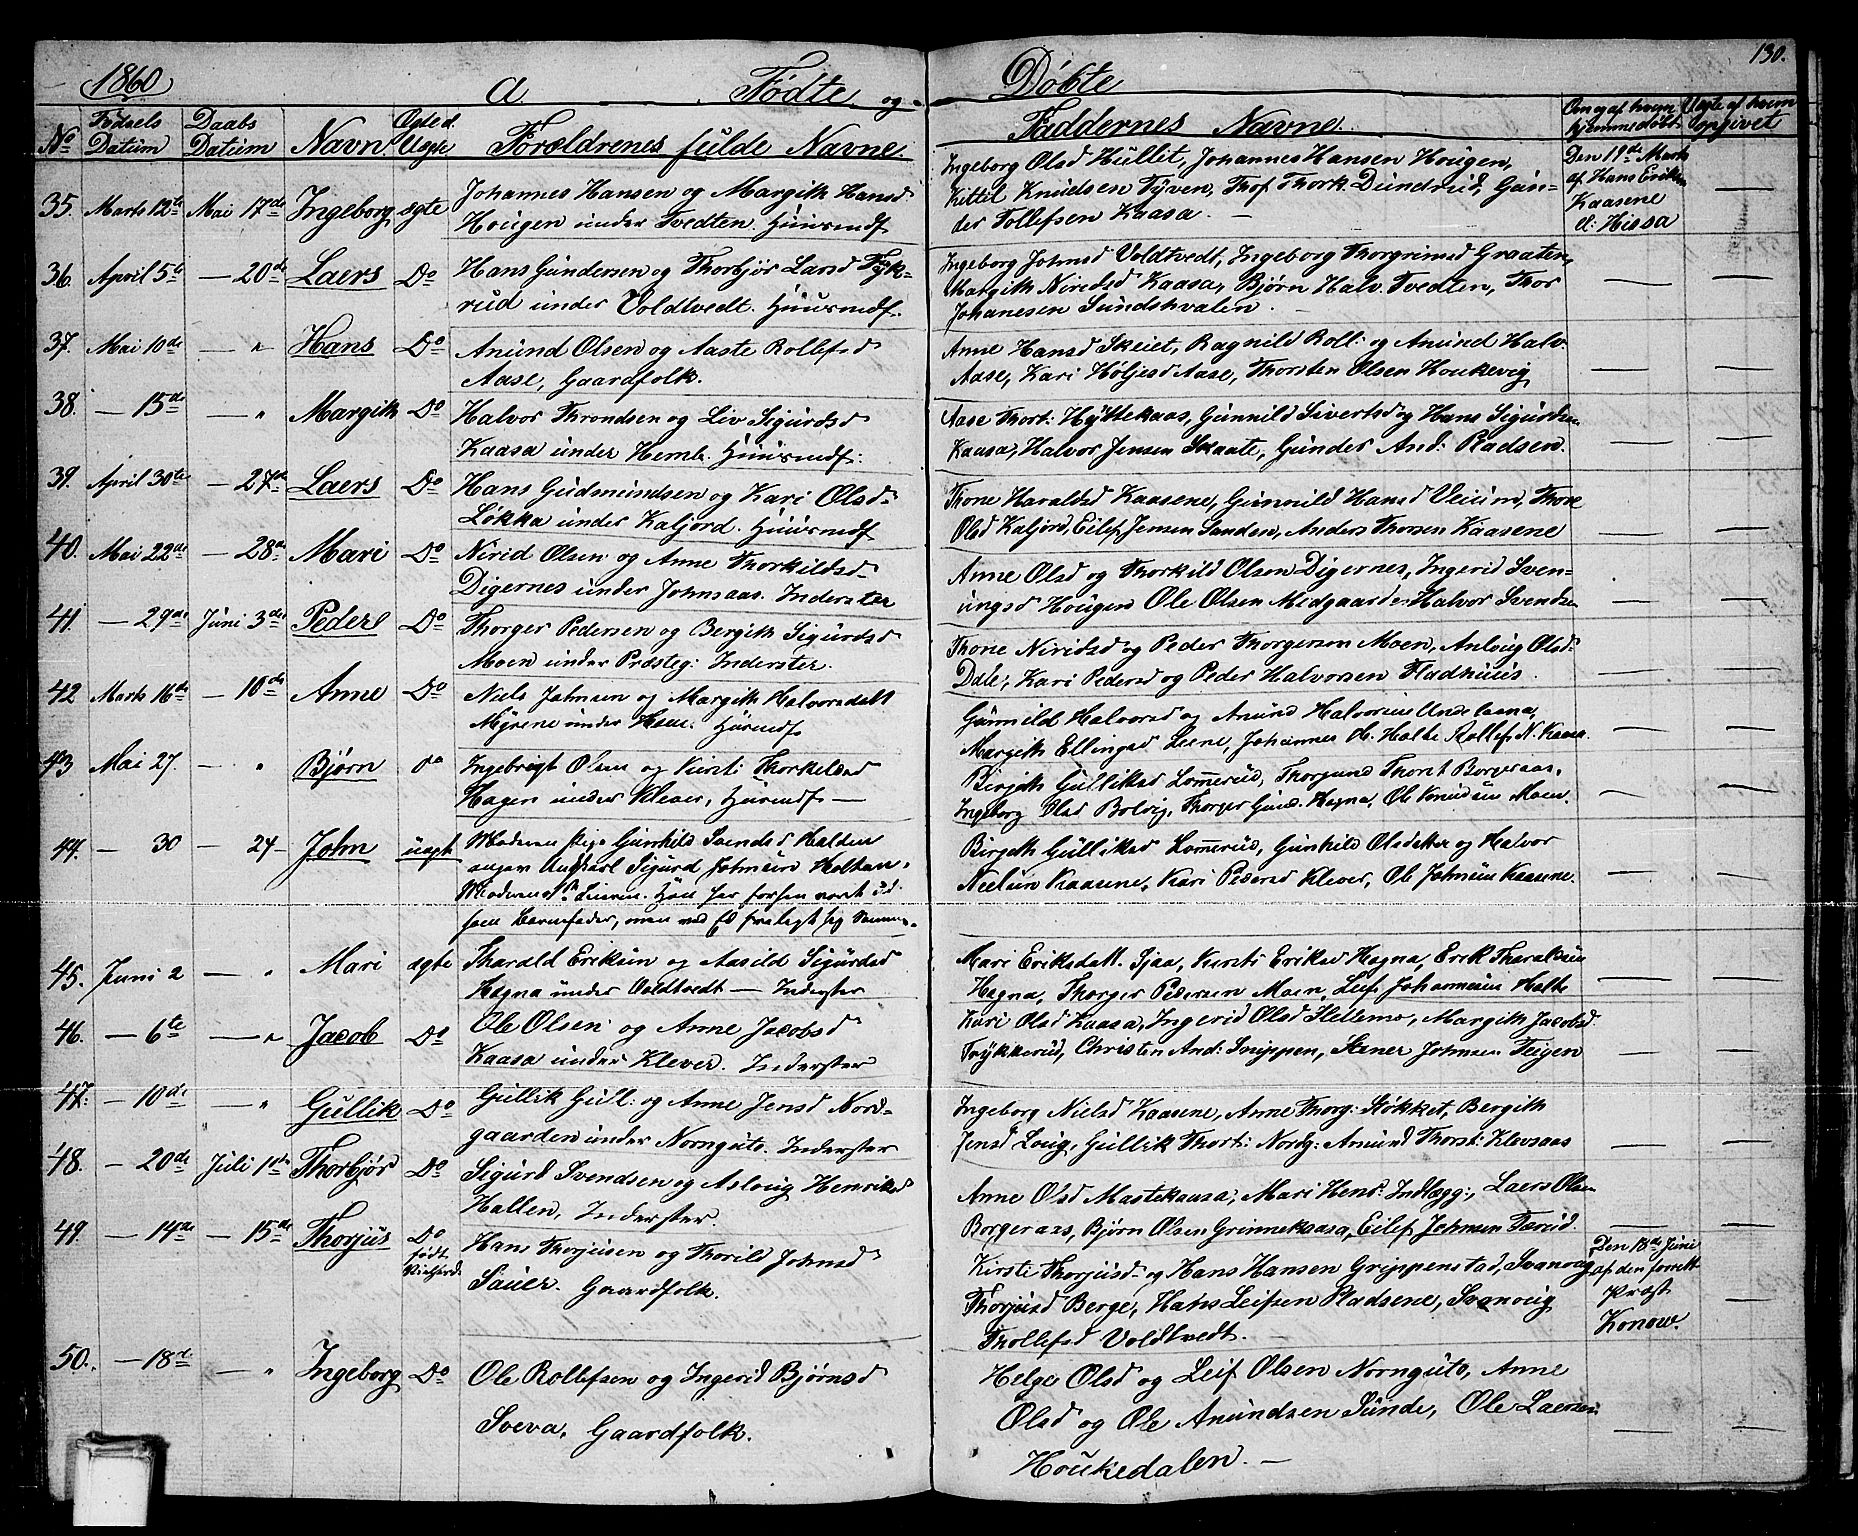 1860
130.
a. Fødte og Døbte
No Fødsels Datum Daabs Datum Navn. Ægte el. Uægte Forældrenes fulde Navne. Faddernes Navne. Om og af hvem hjemmedøbt Uægte af hvem opgivet
35. Marts 12te Mai 17de Ingeborg ægte Johannes Hansen og Margith Hansd Ingeborg Olsd Hullet, Johannes Hansen Hougen, Den 19de Marts
Hougen under Tvedten. Huusmdf. Kittel Knudsen Tyven, Thof Thork Dundrud, Gun- af Hans Eriksen
der Tollefsen Kaasa. — Kaasene
d: Hissa
36. April 5te — 20de Laers Do Hans Gundersen og Thorbjør Larsd Tyk- Ingeborg Johnsd Voldtvedt, Ingeborg Thorgrimsd Graaten,
rud under Voldtvedt. Huusmdf. Margith Niridsd Kaasa, Bjørn Halv. Tvedten, Thor
Johanesen Sundshvalen.
37. Mai 10de — " Hans Do Anund Olsen og Aaste Rollefsd Anne Hansd Skeiet, Ragnild Roll: og Anund Halv.
Aase, Gaardfolk. Aase, Kari Høljesd Aase, Thorsten Olsen Houkevig
38. — 15de — " Margith Do Halvor Throndsen og Liv Sigurdsd Aase Thort: Hyttekaas, Gunnild Sivertsd og Hans Sigurdsen
Kaasa under Hemb. Huusmdf: Kaasa, Halvor Jensen Skaate, Gunder And: Radsen.
39. April 30te — 27de Laers Do Hans Gudmundsen og Kari Olsd Thone Haraldsd Kaasene, Gunnild Hansd Veium, Thone
Løkka under Kaljord. Huusmdf Olsd Kaljord, Eilef Jensen Sanden, Anders Thorsen Kaasene
40. Mai 22de — 28de Mari Do Nirid Olsen og Anne Thorkildsd Anne Olsd og Thorkild Olsen Digernes, Ingerid Sven-
Digernes under Johnsaas. Inderster ungsd Hougen Ole Olsen Midgaarde, Halvor Svendsen
41. — 29de Juni 3de Peder Do Thorger Pedersen og Bergith Sigurdsd Thone Niridsd og Peder Thorgersen Moen, Anloug Olsd
Moen under Præsteg: Inderster. Dale, Kari Pedersd og Peder Halvorsen Fladhuus.
42 Marts 16de — 10de Anne Do Niels Johnsen og Margith Halvorsdatt Gunnild Halvorsd og Anund Halvorsen Undelaana,
Myrene under Huusmdf Margith Ellingsd Leene, Johannes Holte Rollef N. Kaasa.
43 Mai 27. — " Bjørn do Ingebregt Olsen og Kirsti Thorkelsd Birgith Gulliksd Lomerud, Thorgund Thorst Borgeraas,
Hagen under Klever, Huusmdf — Ingeborg Olsd Bolvig, Thorger Gund. Hogna, Ole Knudsen Moen.
44. — 30 — 24 — John uægt Moderen Pige Gunhild Svendsd Halden Birgith Gulliksd Lomerud, Gunhild Olsd og Halvor
angav Ungkarl Sigurd Johnsen Holtan Nielsen Kaasene, Kari Pedersd Klever, Ole Johnsen Kaasene.
Hun har
som Barnefader, men
45. Juni 2 — " Mari ægte Tharald Eriksen og Aasild Sigurdsd Mari Eriksdatt. Sjaa, Kirsti Eriksd Hogna, Erik Tharaldsen
Hogna under Voldtvedt — Inderster Hogna, Thorger Pedersen Moen, Leif Johannesen Holte
46. — 6te — " Jacob Do Ole Olsen og Anne Jacobsd Kari Olsd Kaasa, Ingerid Olsd Hellemo, Margith Jacobsd
Kaasa under Klever. Inderster Trykkerud, Christen And: Snippen, Stener Johnsen Teigen
47. — 10de — " Gullik Do Gullik Gull: og Anne Jensd Nord- Ingeborg Nielsd Kaasene, Anne Thorg: Stokket, Bergith
gaarden under Norngutu. Inderster Jensd Loug, Gullik Thort: Nordg: Amund Thorst: Klevsaas
48. — 20de Juli 1ste Thorbjør Do Sigurd Svendsen og Asloug Henriksd Anne Olsd Mastekaasa, Mari Henr: Indlægg:, Laers Olsen
Hallen, Inderster. Borgeraas, Bjørn Olsen Grinnekaasa, Eilef Johnsen Tærud.
49. — 14de — 15de Thorjus Do født Hans Thorjusen og Thorild Johnsd Kirsti Thorjusd og Hans Hansen Grippenstad, Svanoug Den 18de Juni
Sauer. Gaardfolk. Thorjusd Berge, Hans Leifsen Pladsene, Svanoug af den forrett
Thollefsd Voldtvedt. — Præst
Konow.
50. — 18de — " Ingeborg Do Ole Rollefsen og Ingerid Bjørnsd Helge Olsd og Leif Olsen Norngutu, Anne
Sveva, Gaardfolk. Olsd og Ole Anundsen Sunde, Ole Laersen
Houkedalen. —